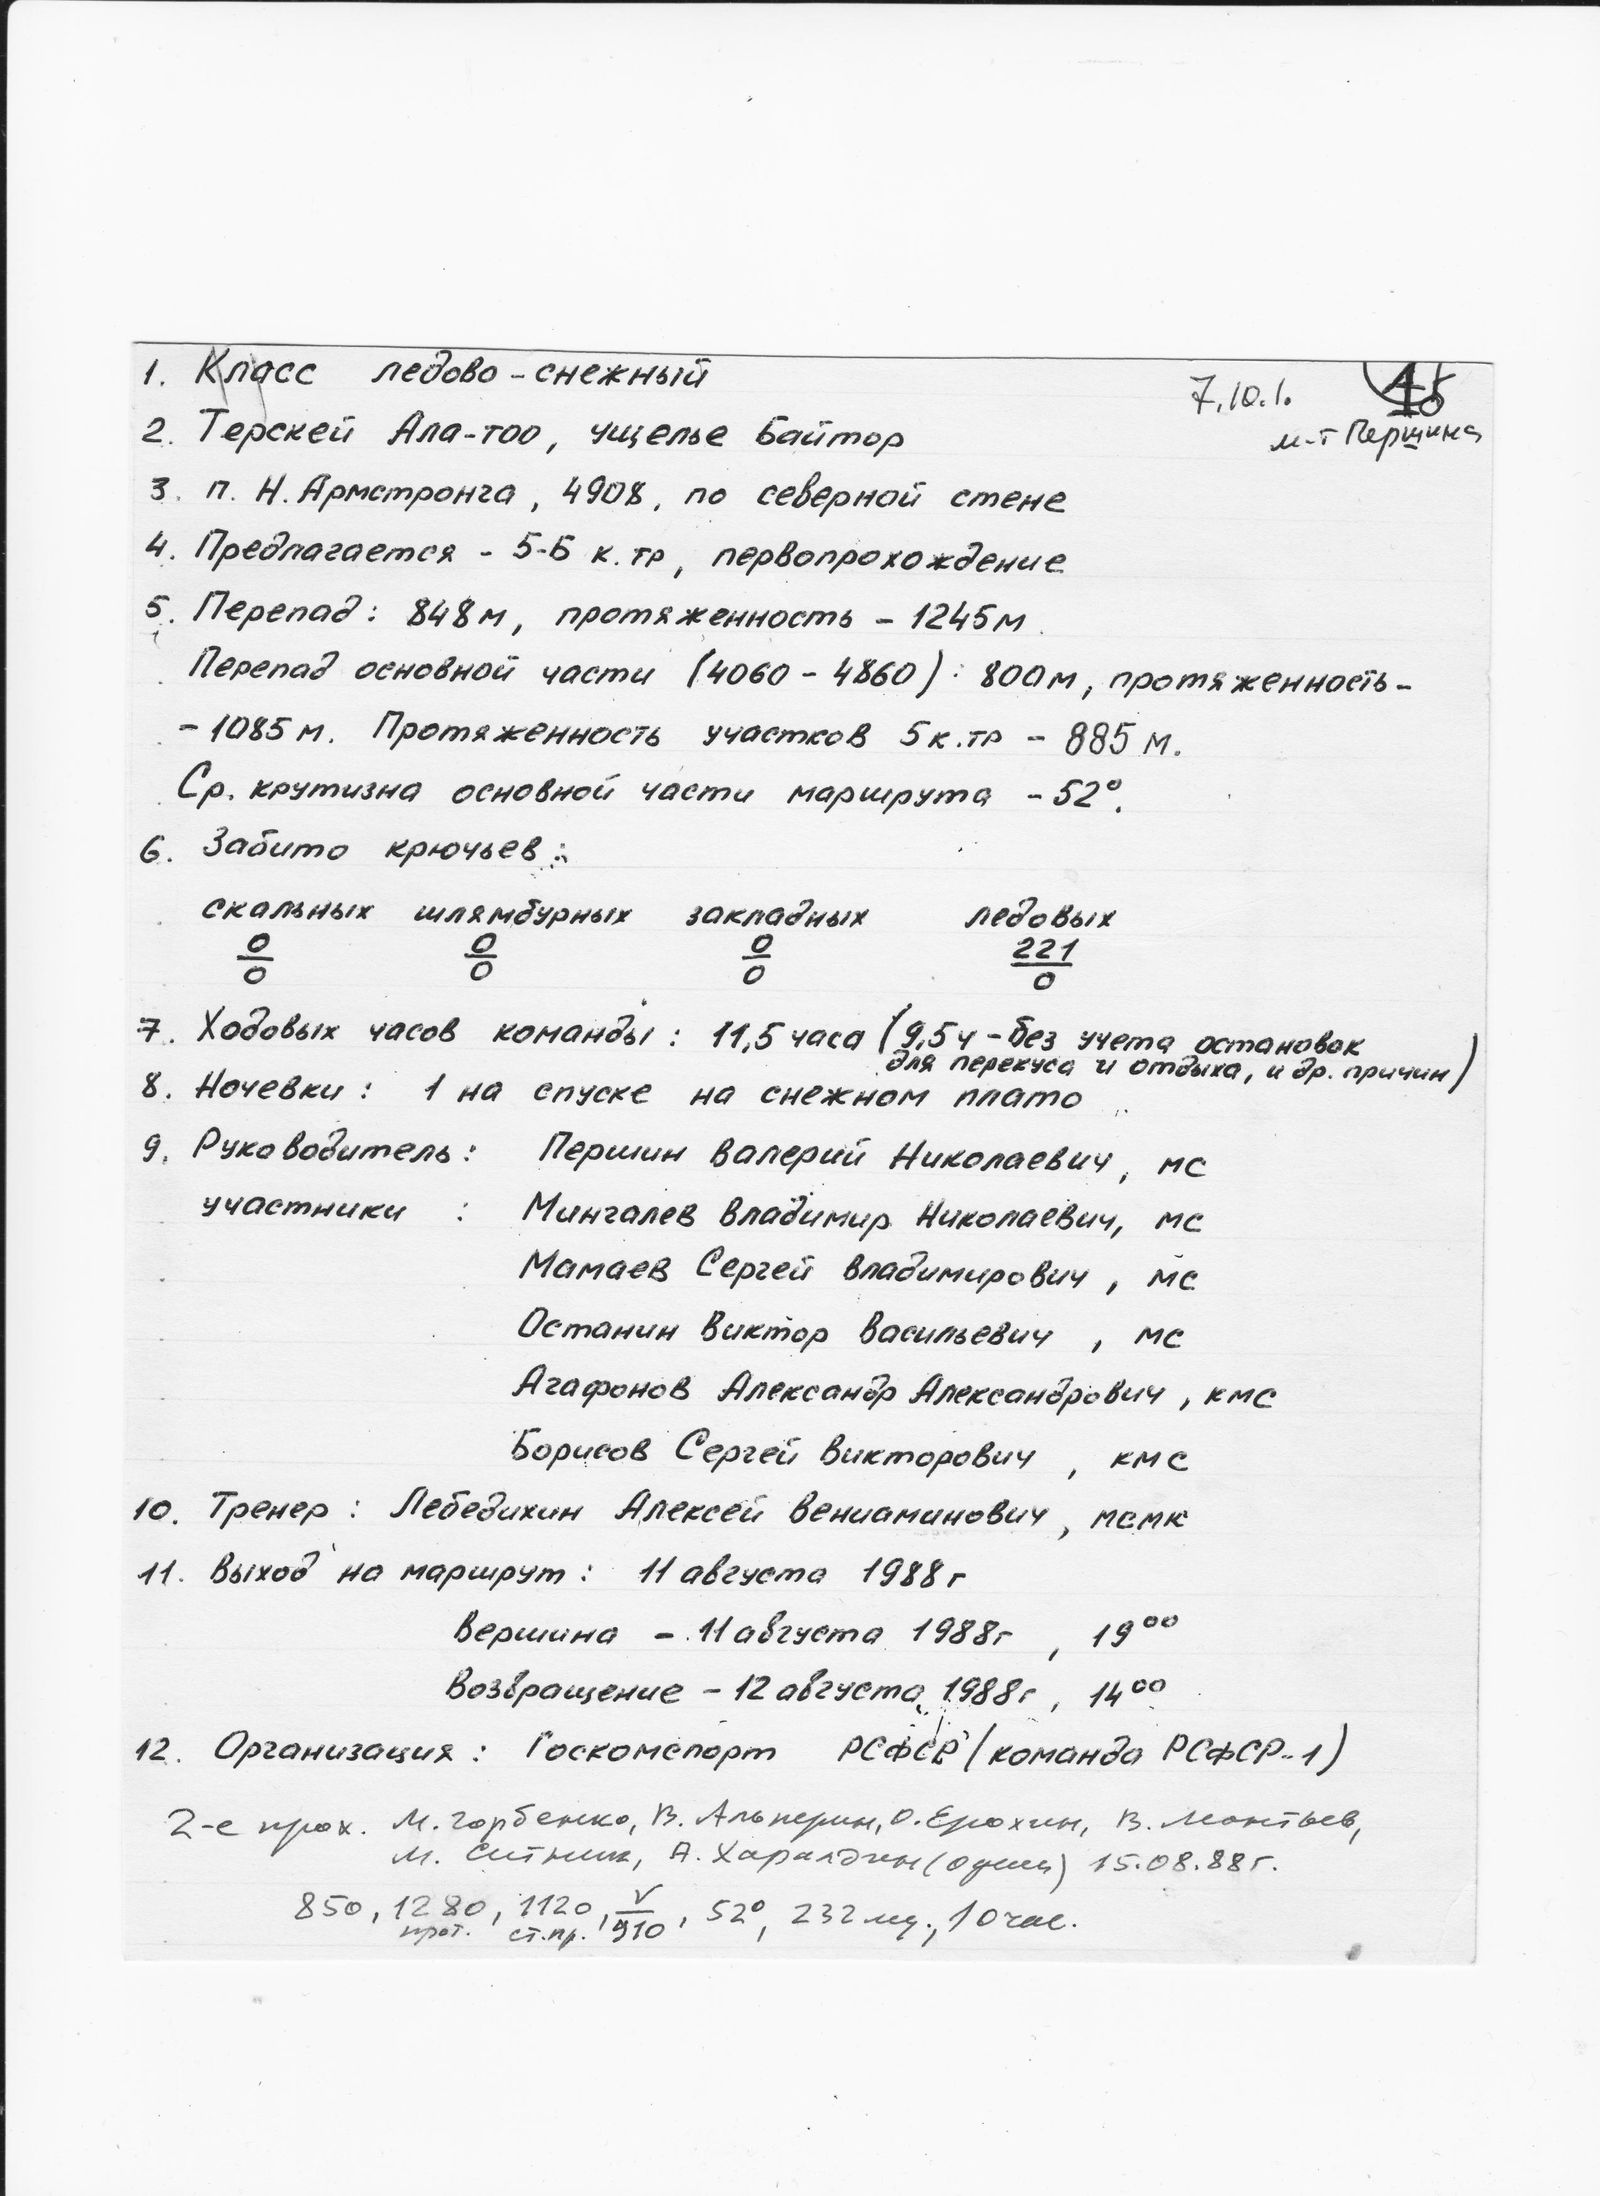 1. Класс ледово-снежный
7.10.1.
2. Терскей Ала-тоо, ущелье Байтор
м-т Першина
3. п. Н. Армстронга, 4908, по северной стене
4. Предлагается - 5-Б к.тр, первопрохождение
5. Перепад: 848м, протяженность - 1245м
Перепад основной части (4060 - 4860): 800м, протяженность-
- 1085м. Протяженность участков 5к.тр - 885м.
Ср. крутизна основной части маршрута - 52°.
6. Забито крючьев:
скальных шлямбурных закладных ледовых
0 0 0 221
0 0 0 0
7. Ходовых часов команды: 11,5 часа (9,5ч - без учета остановок
для перекуса и отдыха, и др. причин)
8. Ночевки: 1 на спуске на снежном плато
9. Руководитель: Першин Валерий Николаевич, мс
участники : Мингалев Владимир Николаевич, мс
Мамаев Сергей Владимирович, мс
Останин Виктор Васильевич, мс
Агафонов Александр Александрович, кмс
Борисов Сергей Викторович, кмс
10. Тренер: Лебедихин Алексей Вениаминович, мсмк
11. Выход на маршрут: 11 августа 1988г
Вершина - 11 августа 1988г, 19⁰⁰
Возвращение - 12 августа 1988г, 14⁰⁰
12. Организация: Госкомспорт РСФСР (команда РСФСР-1)
2-е прох. М. Горбенко, В. Альперин, О. Ерохин, В. Леонтьев,
М. Ситник, А. Харалдин 15.08.88г.
850, 1280, 1120, V, 52°, 232 , 10 час.
прот. ст.пр. 910